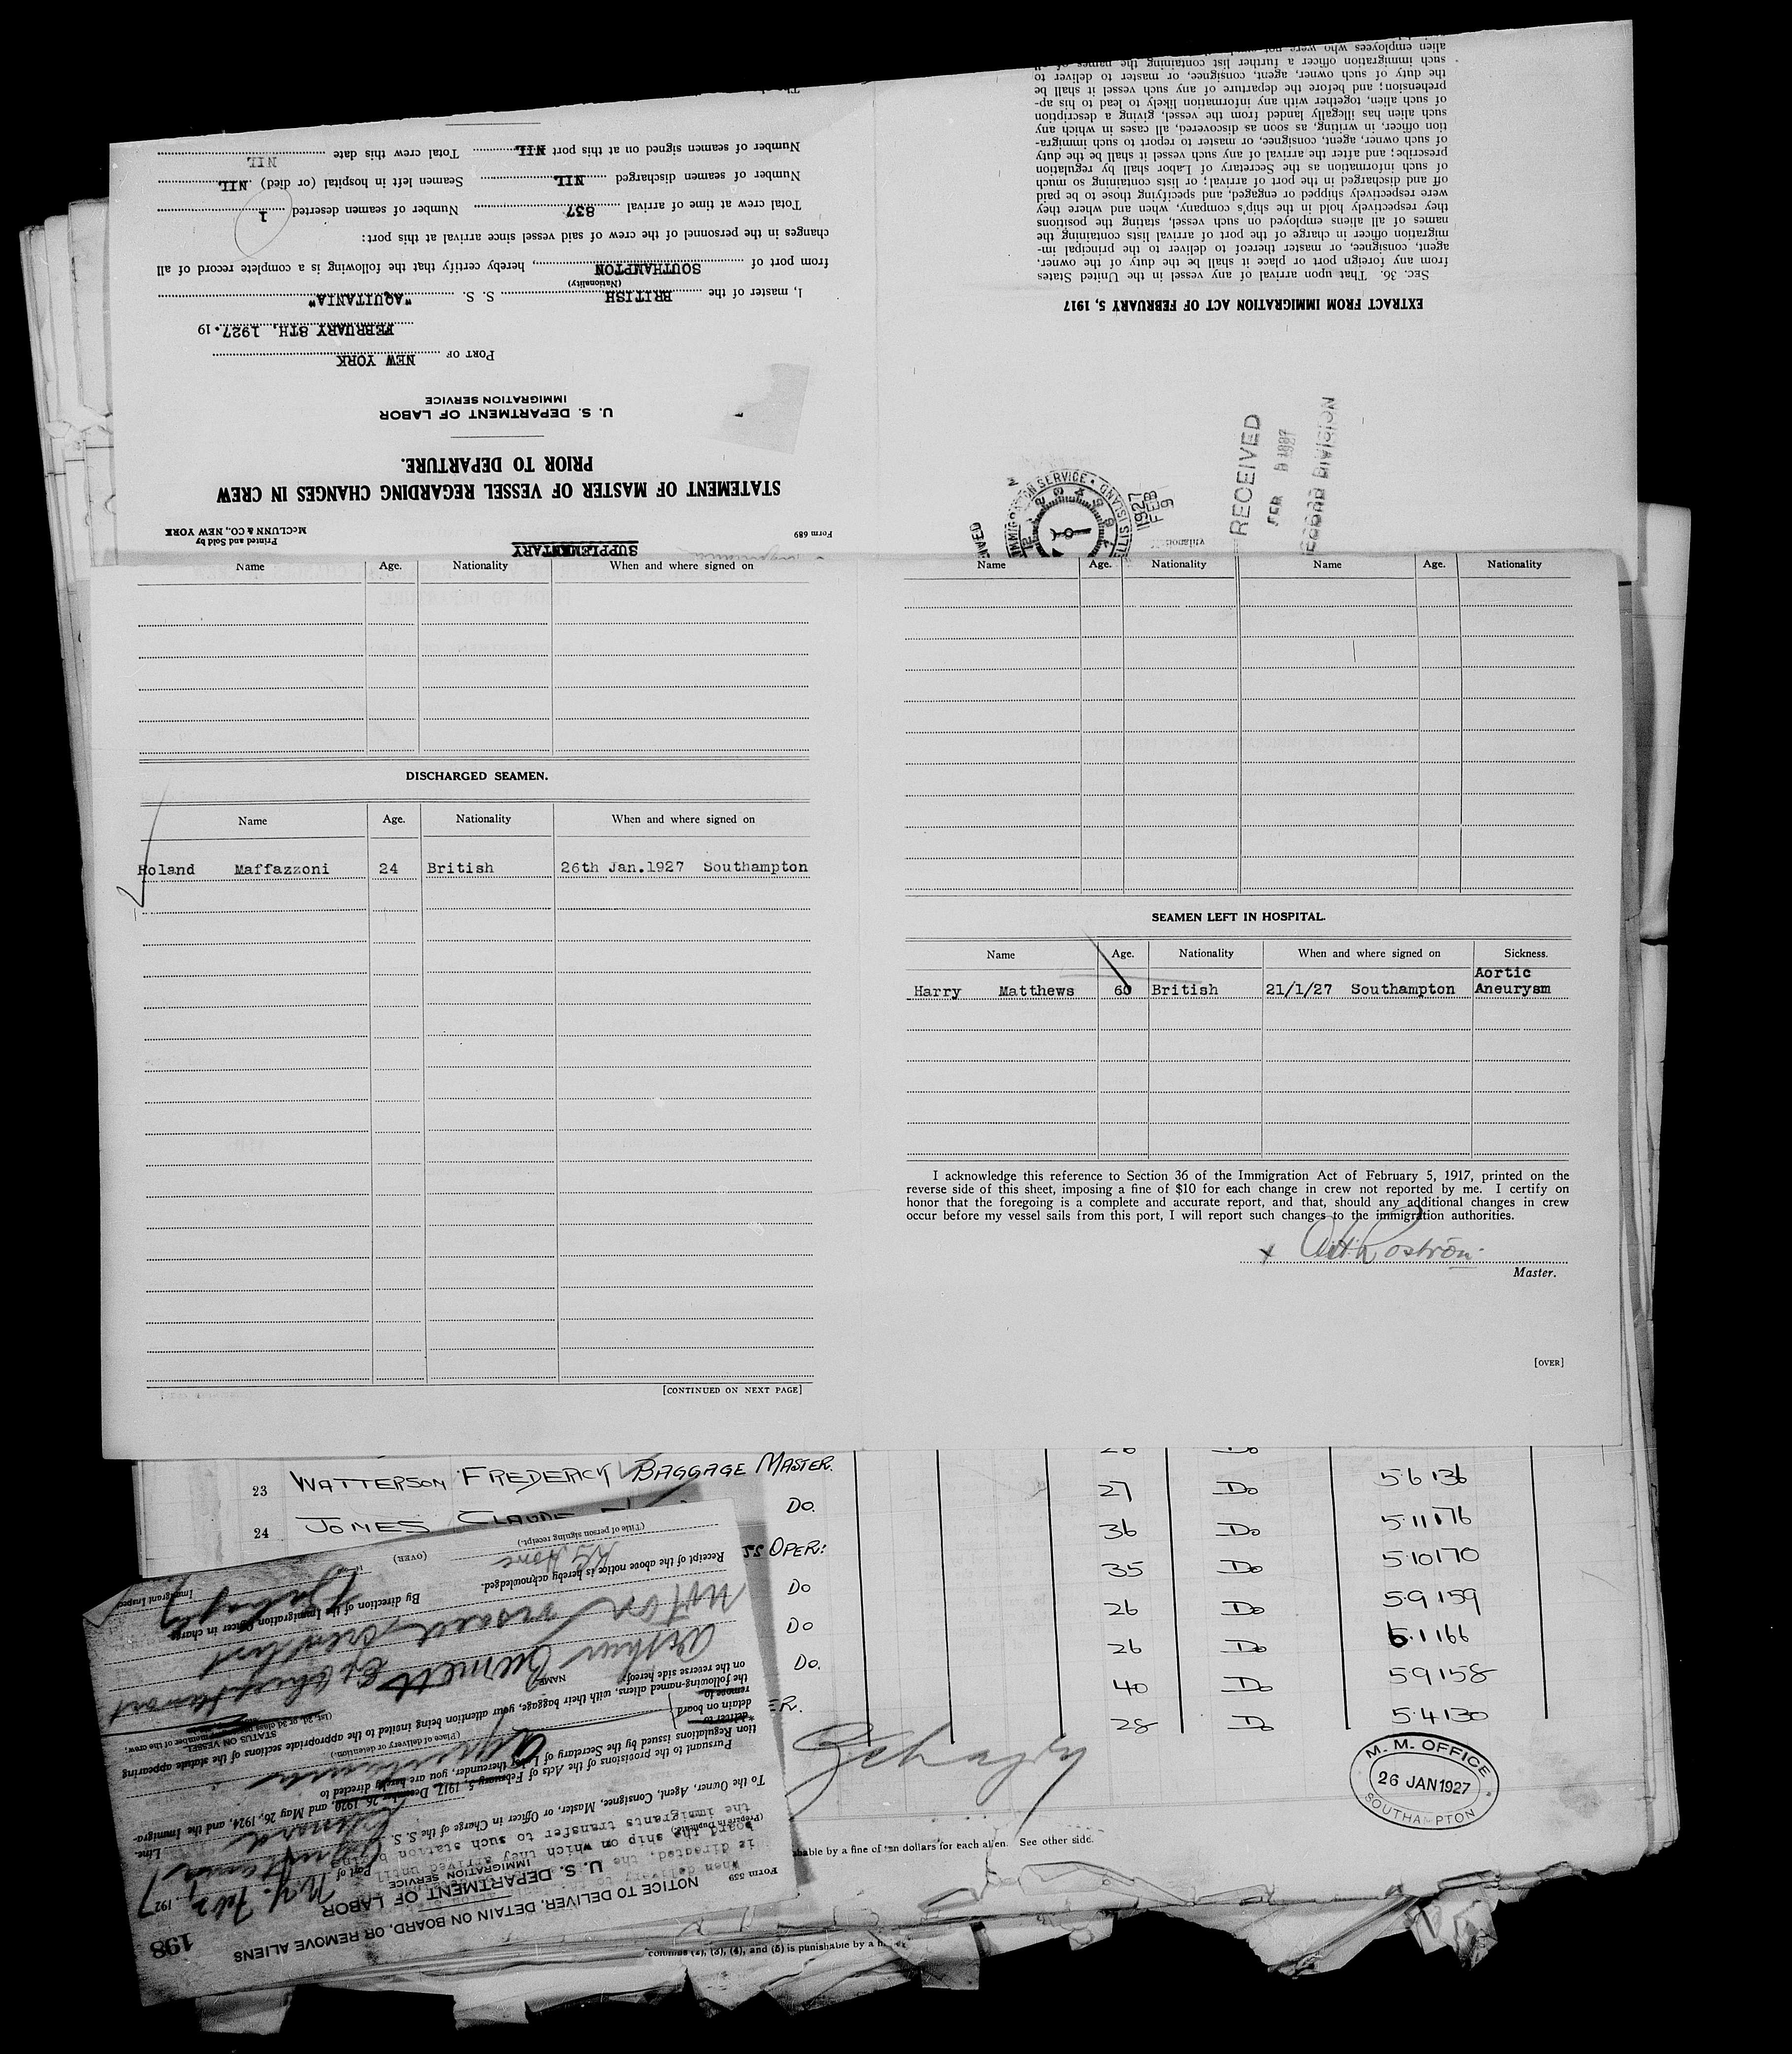 SUPPLEMENTARY
Form 689
Printed and Sold by
McCLUNN & CO., NEW YORK
STATEMENT OF MASTER OF VESSEL REGARDING CHANGES IN CREW
PRIOR TO DEPARTURE.
U. S. DEPARTMENT OF LABOR
IMMIGRATION SERVICE
PORT OF NEW YORK
FEBRUARY 8TH, 1927. 19
I, master of the BRITISH S. S. "AQUITANIA"
(Nationality)
from port of SOUTHAMPTON, hereby certify that the following is a complete record of all
changes in the personnel of the crew of said vessel since arrival at this port:
Total crew at time of arrival 837 Number of seamen deserted 1
Number of seamen discharged NIL Seamen left in hospital (or died) NIL
Number of seamen signed on at this port NIL Total crew this date
NIL
IMMIGRATION SERVICE ELLIS ISLAND
1927
FEB
9
RECEIVED
FEB 9 1927
RECORD DIVISION
EXTRACT FROM IMMIGRATION ACT OF FEBRUARY 5, 1917
SEC. 36. That upon arrival of any vessel in the United States
from any foreign port or place it shall be the duty of the owner,
agent, consignee, or master thereof to deliver to the principal im-
migration officer in charge of the port of arrival lists containing the
names of all aliens employed on such vessel, stating the positions
they respectively hold in the ship's company, when and where they
were respectively shipped or engaged, and specifying those to be paid
off and discharged in the port of arrival; or lists containing so much
of such information as the Secretary of Labor shall by regulation
prescribe; and after the arrival of any such vessel it shall be the duty
of such owner, agent, consignee, or master to report to such immigra-
tion officer, in writing, as soon as discovered, all cases in which any
such alien has illegally landed from the vessel, giving a description
of such alien, together with any information likely to lead to his ap-
prehension; and before the departure of any such vessel it shall be
the duty of such owner, agent, consignee, or master to deliver to
such immigration officer a further list containing the names of all
alien employees who were not
Name Age. Nationality When and where signed on
DISCHARGED SEAMEN.
Name Age. Nationality When and where signed on
Roland Maffazzoni 24 British 26th Jan.1927 Southampton
[CONTINUED ON NEXT PAGE]
Name Age. Nationality Name Age. Nationality
SEAMEN LEFT IN HOSPITAL.
Name Age. Nationality When and where signed on Sickness.
Harry Matthews 60 British 21/1/27 Southampton Aortic
Aneurysm
I acknowledge this reference to Section 36 of the Immigration Act of February 5, 1917, printed on the
reverse side of this sheet, imposing a fine of $10 for each change in crew not reported by me. I certify on
honor that the foregoing is a complete and accurate report, and that, should any additional changes in crew
occur before my vessel sails from this port, I will report such changes to the immigration authorities.
x A.H. Rostron.
Master.
[OVER]
23 WATTERSON FREDERICK BAGGAGE MASTER. 27 Do 5.6 136
24 JONES CLAUDE Do. 36 Do 5.11 176
SS OPER: 35 Do 5.10 170
Do 26 Do 5.9 159
Do 26 Do 5.1 166
Do. 40 Do 5.9 158
ER. 28 Do 5.4 130
M. M. OFFICE
26 JAN 1927
SOUTHAMPTON
shable by a fine of ten dollars for each alien. See other side.
columns (2), (3), (4), and (5) is punishable by a
198
Form 539
NOTICE TO DELIVER, DETAIN ON BOARD, OR REMOVE ALIENS
U. S. DEPARTMENT OF LABOR
IMMIGRATION SERVICE
(Prepare in Duplicate)
Port of N.Y. Feb 2, 1927
To the Owner, Agent, Consignee, Master, or Officer in Charge of the S. S. Aquitania
Cunard Line.
Pursuant to the provisions of the Acts of February 5, 1917, December 26, 1920, and May 26, 1924, and the Immigra-
tion Regulations issued by the Secretary of Labor thereunder, you are hereby directed to
deliver to
detain on board Aquitania
remove to
(Place of delivery or detention.)
the following-named aliens, with their baggage, your attention being invited to the appropriate sections of the statute appearing
on the reverse side hereof:
NAME
STATUS ON VESSEL
Arthur Burnett
Not on visaed crew list
By direction of the Immigration Officer in charge.
Immigrant Inspector
Receipt of the above notice is hereby acknowledged.
(Title of person signing receipt.)
(OVER)